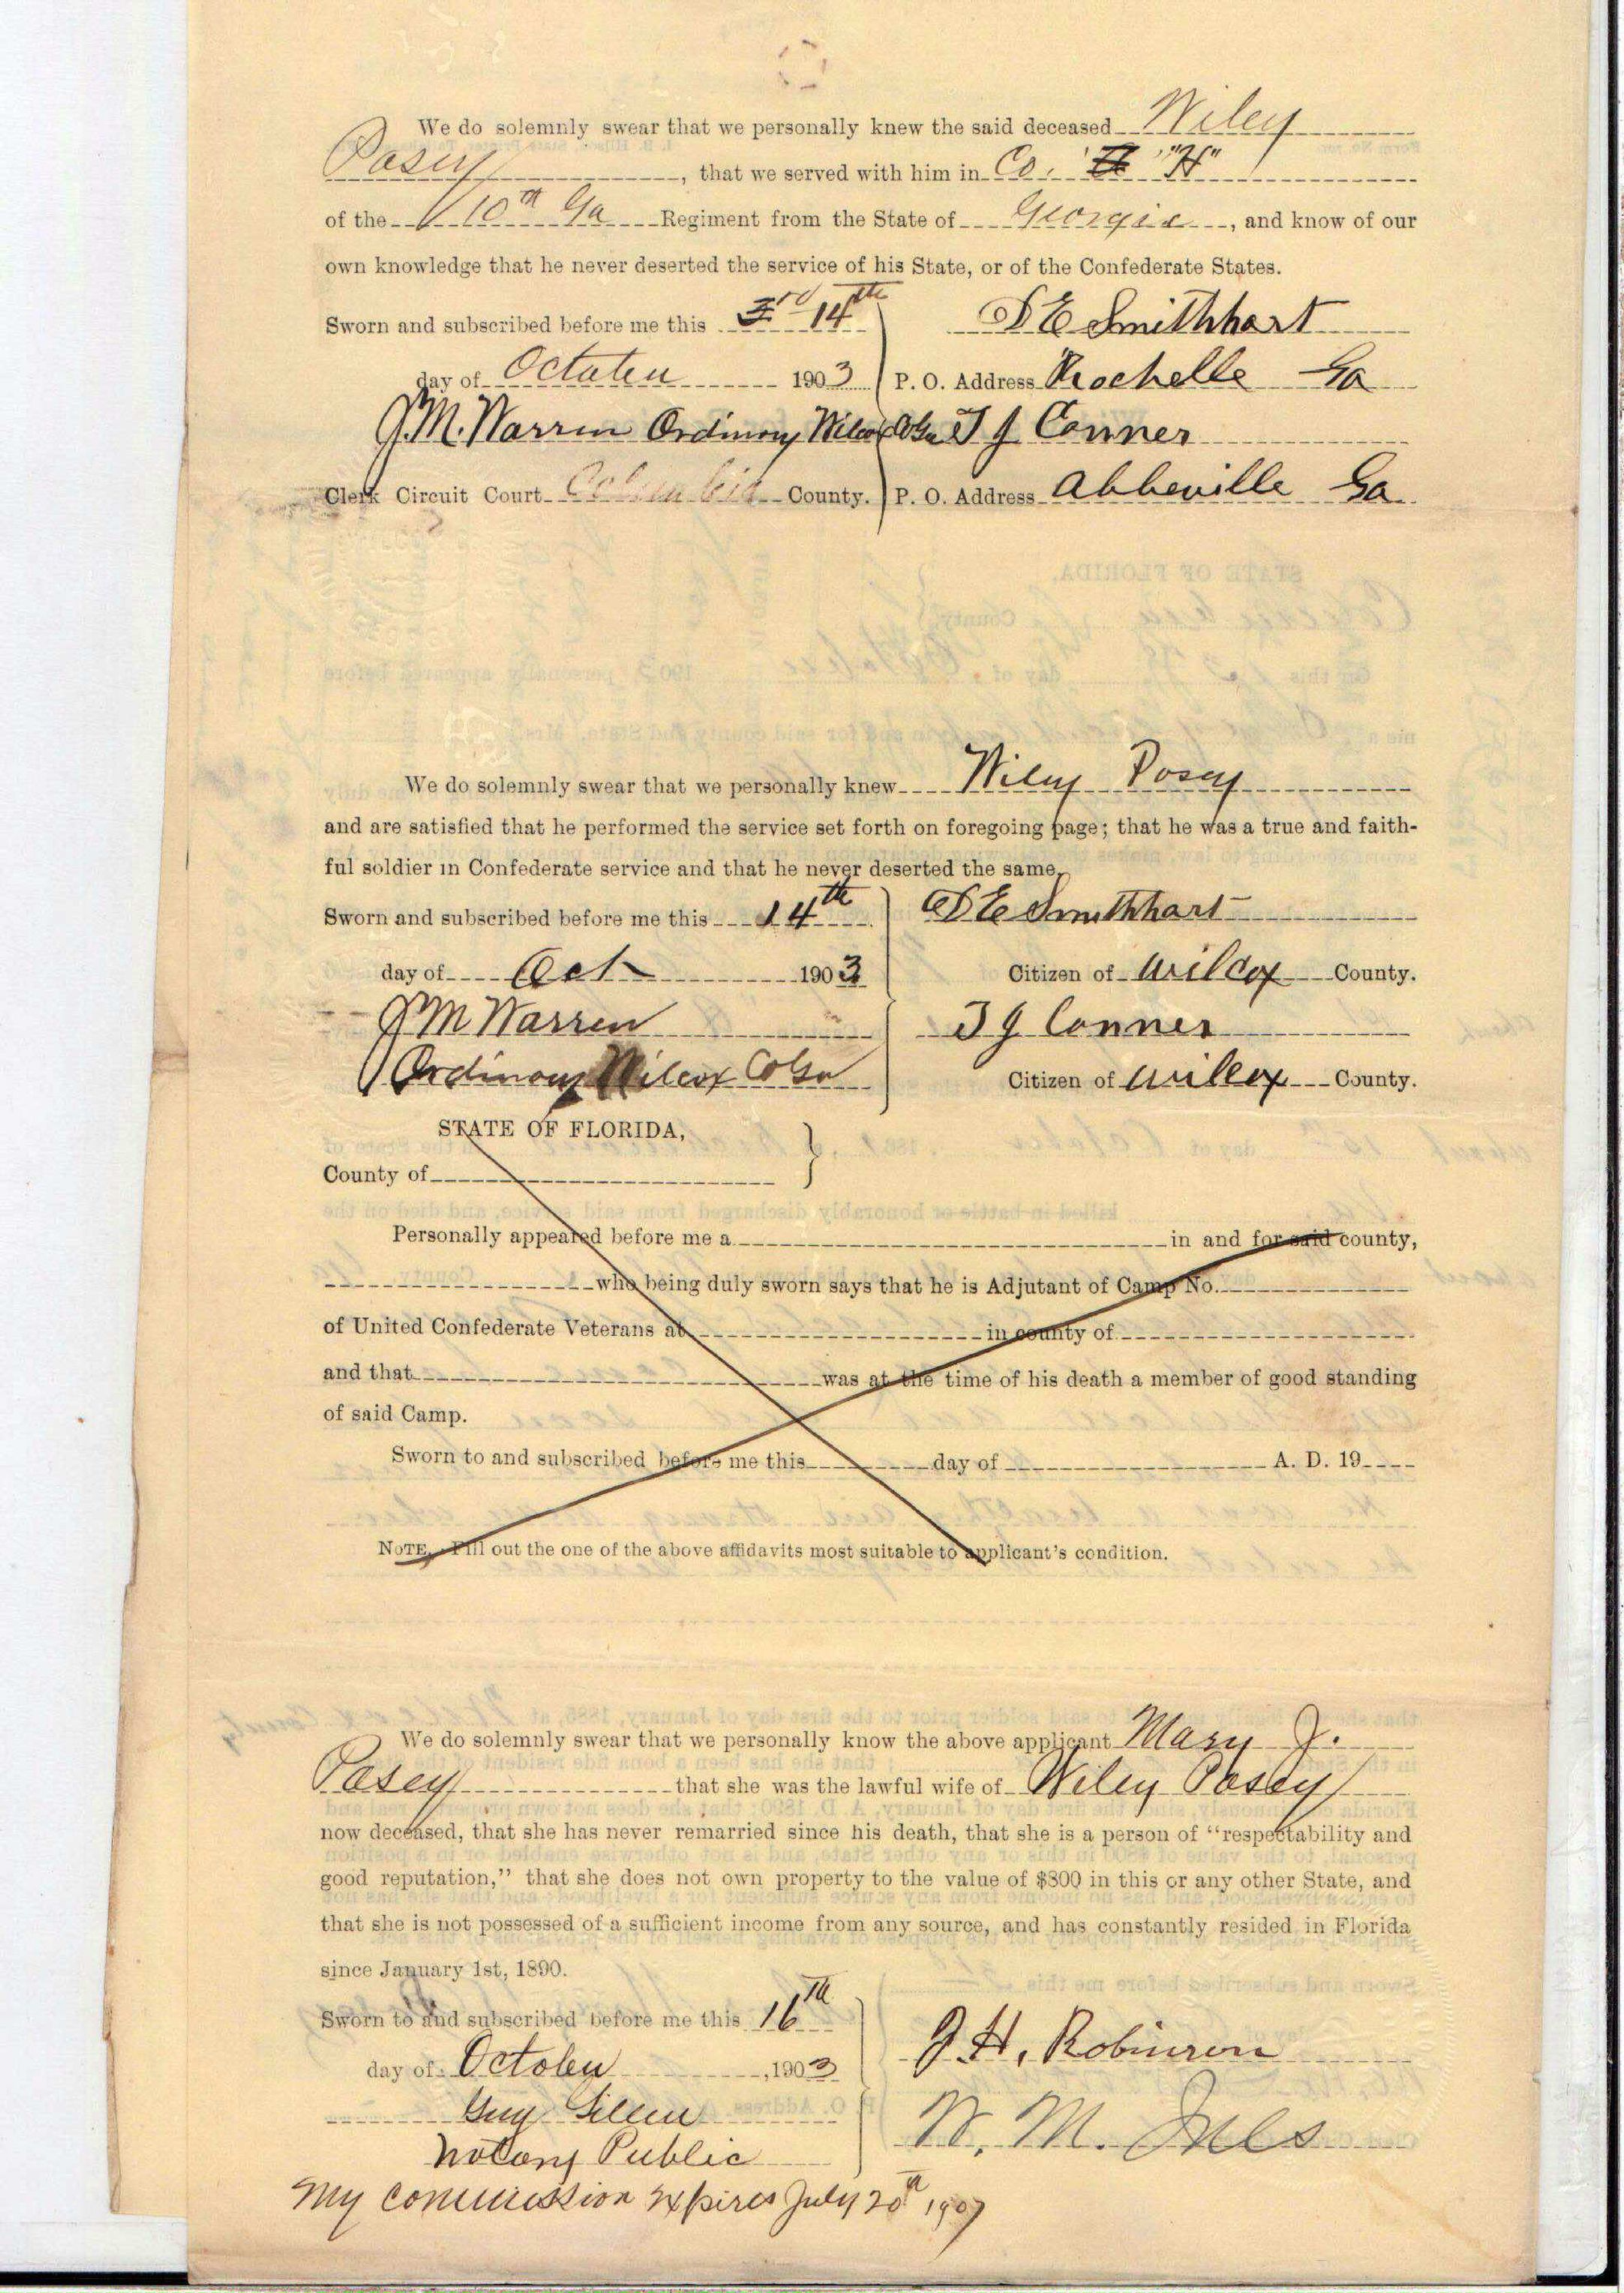 We do solemnly swear that we personally knew the said deceased Wiley
Posey, that we served with him in Co. "H"
of the 10th Ga Regiment from the State of Georgia, and know of our
own knowledge that he never deserted the service of his State, or of the Confederate States.
Sworn and subscribed before me this 3rd 14th
S E Smithhart
day of October 1903
P. O. Address Rochelle Ga
J. M. Warren Ordinary Wilcox Co Ga
T J Conner
Clerk Circuit Court Columbia County.
P. O. Address Abbeville Ga
We do solemnly swear that we personally knew Wiley Posey
and are satisfied that he performed the service set forth on foregoing page; that he was a true and faith-
ful soldier in Confederate service and that he never deserted the same.
Sworn and subscribed before me this 14th
S E Smithhart
day of Oct 1903
Citizen of Wilcox County.
J M Warren
T J Conner
Ordinary Wilcox Co Ga
Citizen of Wilcox County.
STATE OF FLORIDA,
County of
Personally appeared before me a in and for said county,
who being duly sworn says that he is Adjutant of Camp No.
of United Confederate Veterans at in county of
and that was at the time of his death a member of good standing
of said Camp.
Sworn to and subscribed before me this day of A. D. 19
NOTE. Fill out the one of the above affidavits most suitable to applicant's condition.
We do solemnly swear that we personally know the above applicant Mary J.
Posey that she was the lawful wife of Wiley Posey
now deceased, that she has never remarried since his death, that she is a person of "respectability and
good reputation," that she does not own property to the value of $800 in this or any other State, and
that she is not possessed of a sufficient income from any source, and has constantly resided in Florida
since January 1st, 1890.
Sworn to and subscribed before me this 16th
J. H. Robinson
day of October, 1903
Guy Gillen
W. M. Ives
Notary Public
My commission expires July 20th 1907